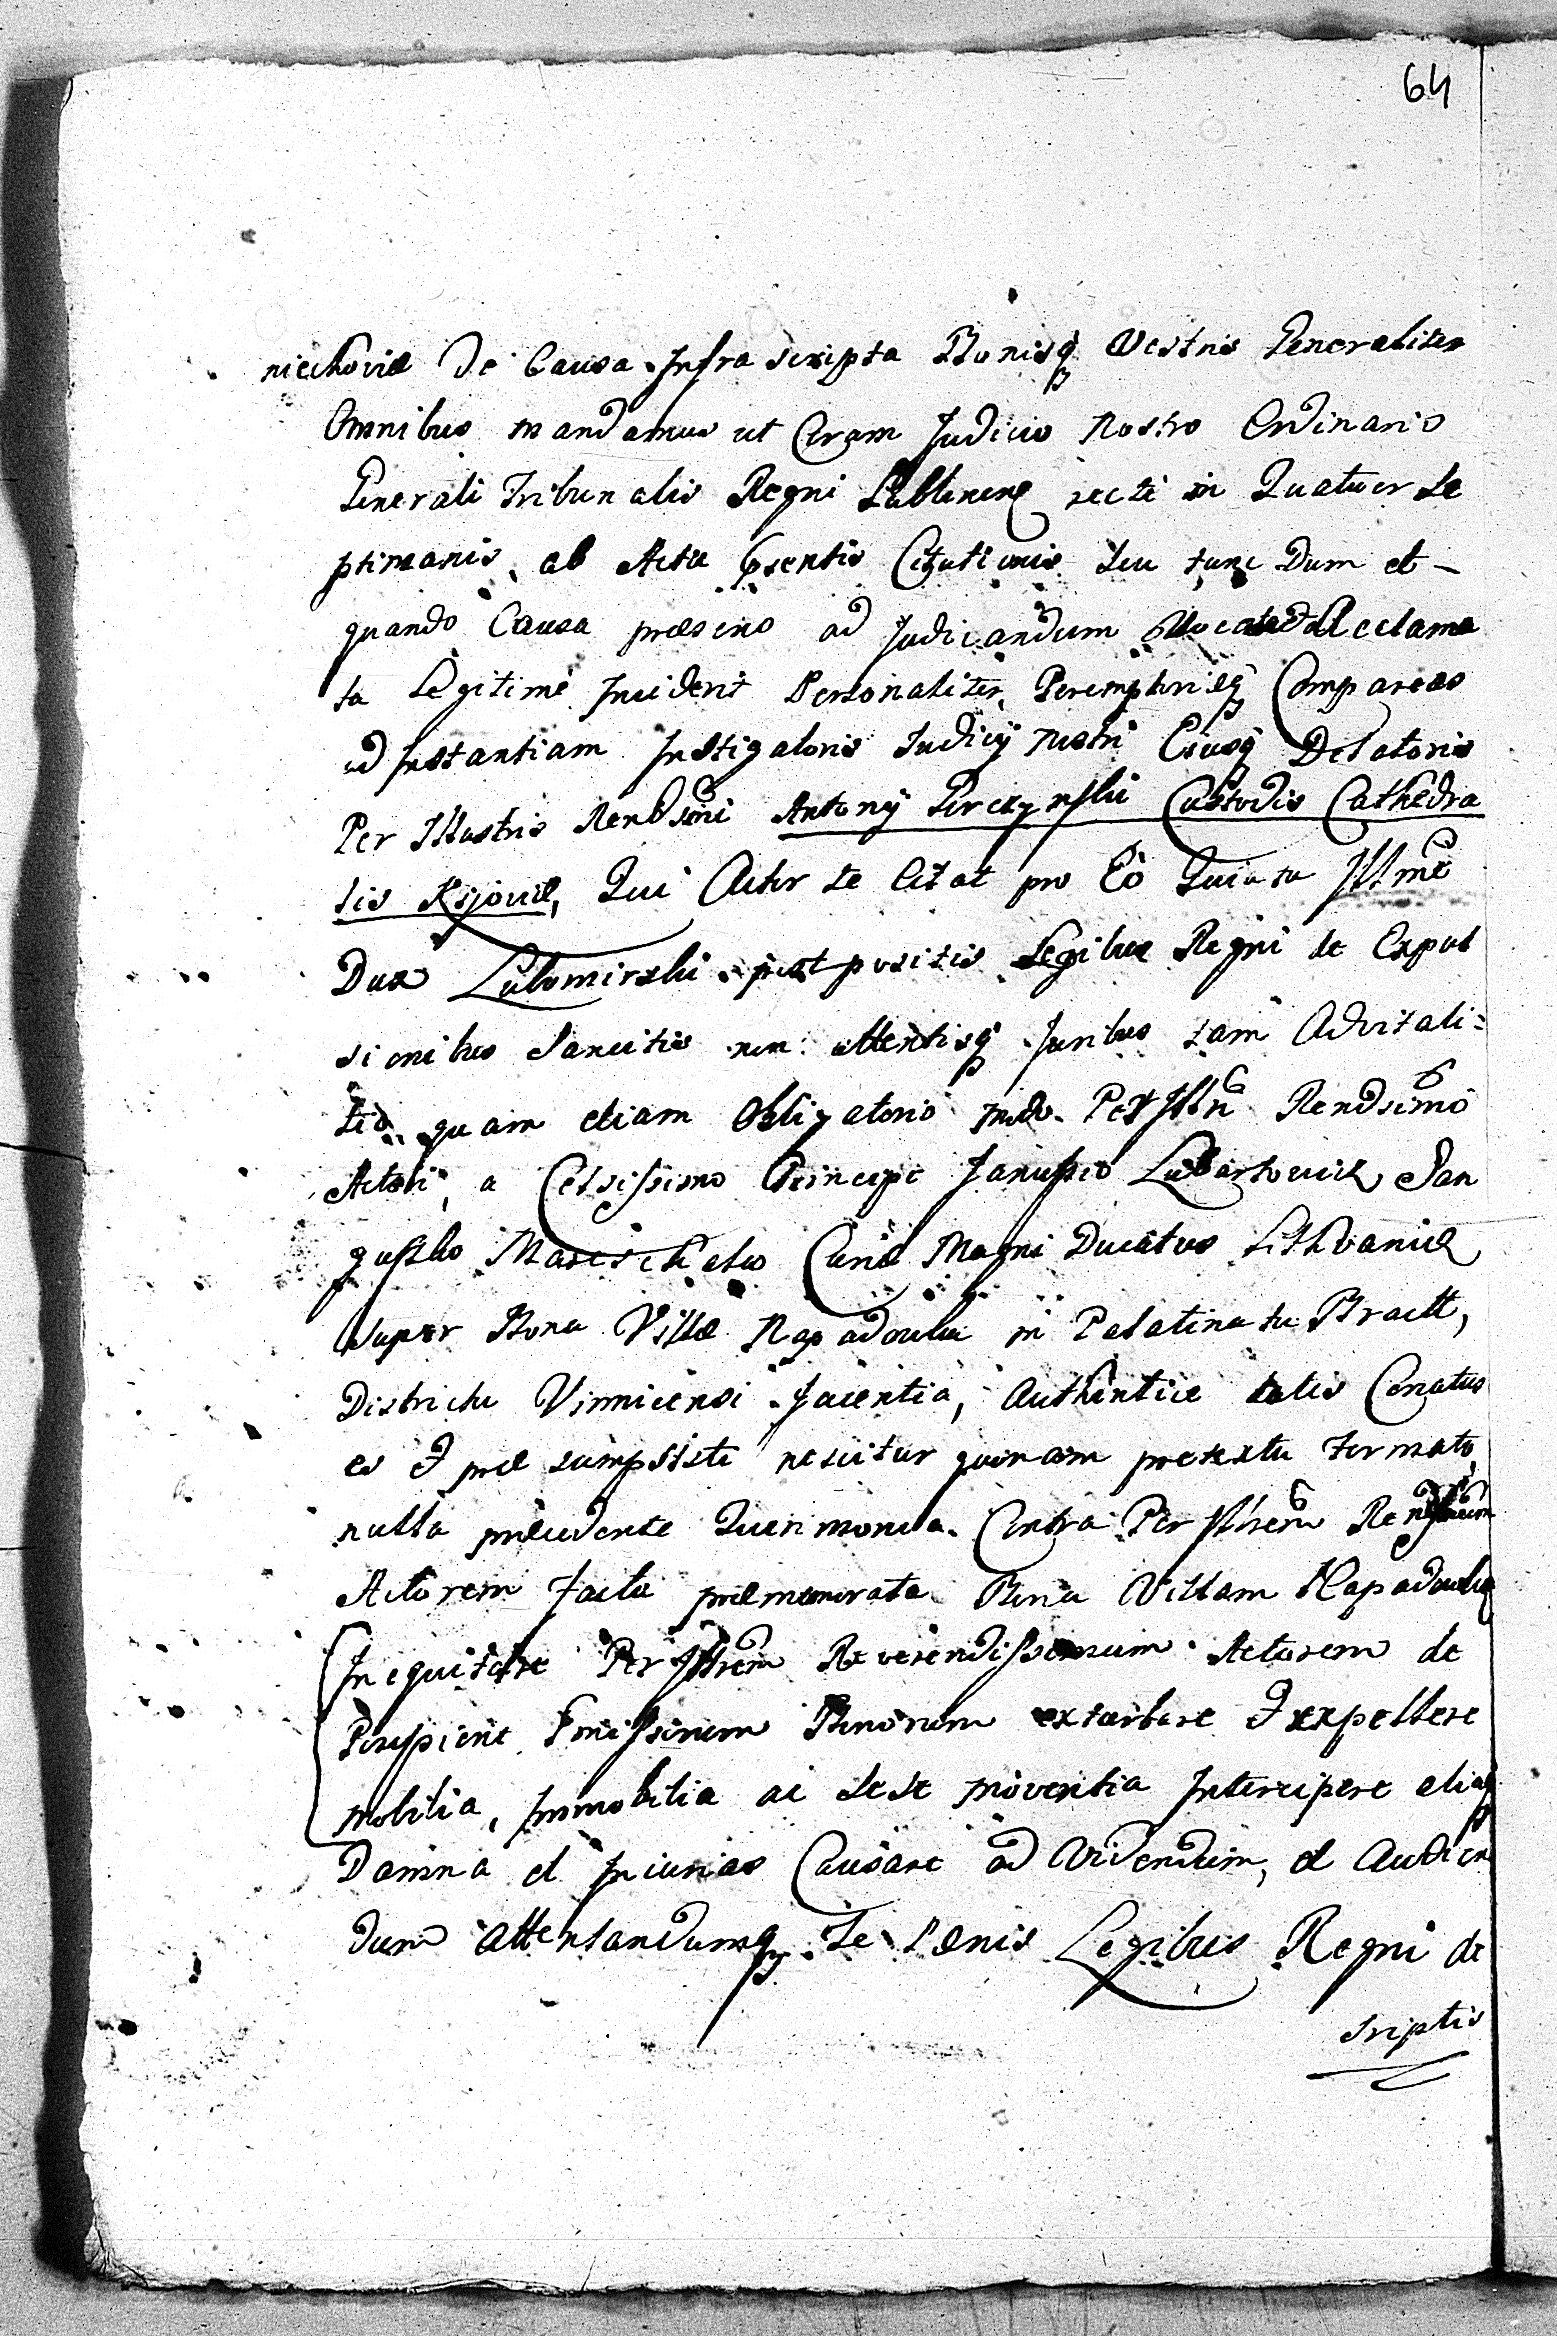 64
niechoviæ De Causa Infra scripta Bonisq Vestris Generaliter
Omnibus mandamus ut Coram Judicio Nostro Ordinario
Generali Tribunalis Regni Lublinen recte in Quatuor Se
ptimanis, ab Actu Pñsentis Citationis Seu tunc Dum et -
quando Causa præsens ad Judicandum Reclama
ta Legitime Inciderit Personaliter, Peremptorieq Compareas
ad Instantiam Instigatoris Judicij Nostri Eiusq Delatoris
Per Illustris Rendssimi Antonij Pirczynski Custodis Cathedra
lis Kijoviæ, Qui Actor Te Citat pro Eo Quia tu Illme
Dux Lubomirski postpositis Legibus Regni de Expul
sionibus Sancitis non attentisq Juribus tam Advitali=
tio quam etiam Obligatorio modo Per Illri Rendssimo
Actori, a Celsissimo Principe Janussio Lubartowicz San
gussko Mareschalco Curiæ Magni Ducatus Lithvaniæ
Super Bona Villæ Napadowka in Palatinatu Bracl,
Districtu Vinnicensi Jacentia, Authentice datis Conatus
es & præsumpsisti nescitur quonam prætextu formato,
nulla præcedente Querimonia Contra Per Illrem
Actorem facta præmemorata Bona Villam Napadowka
Inequitare Per Illrem Reverendissimum Actorem de
Bonorum exturbare & expellere
mobilia, Immobilia ac sese moventia Intercipere aliaq
Damna et Iniurias Causare ad Videndum, et Audien
dum attentandumq Te Pænis Legibus Regni de
scriptis